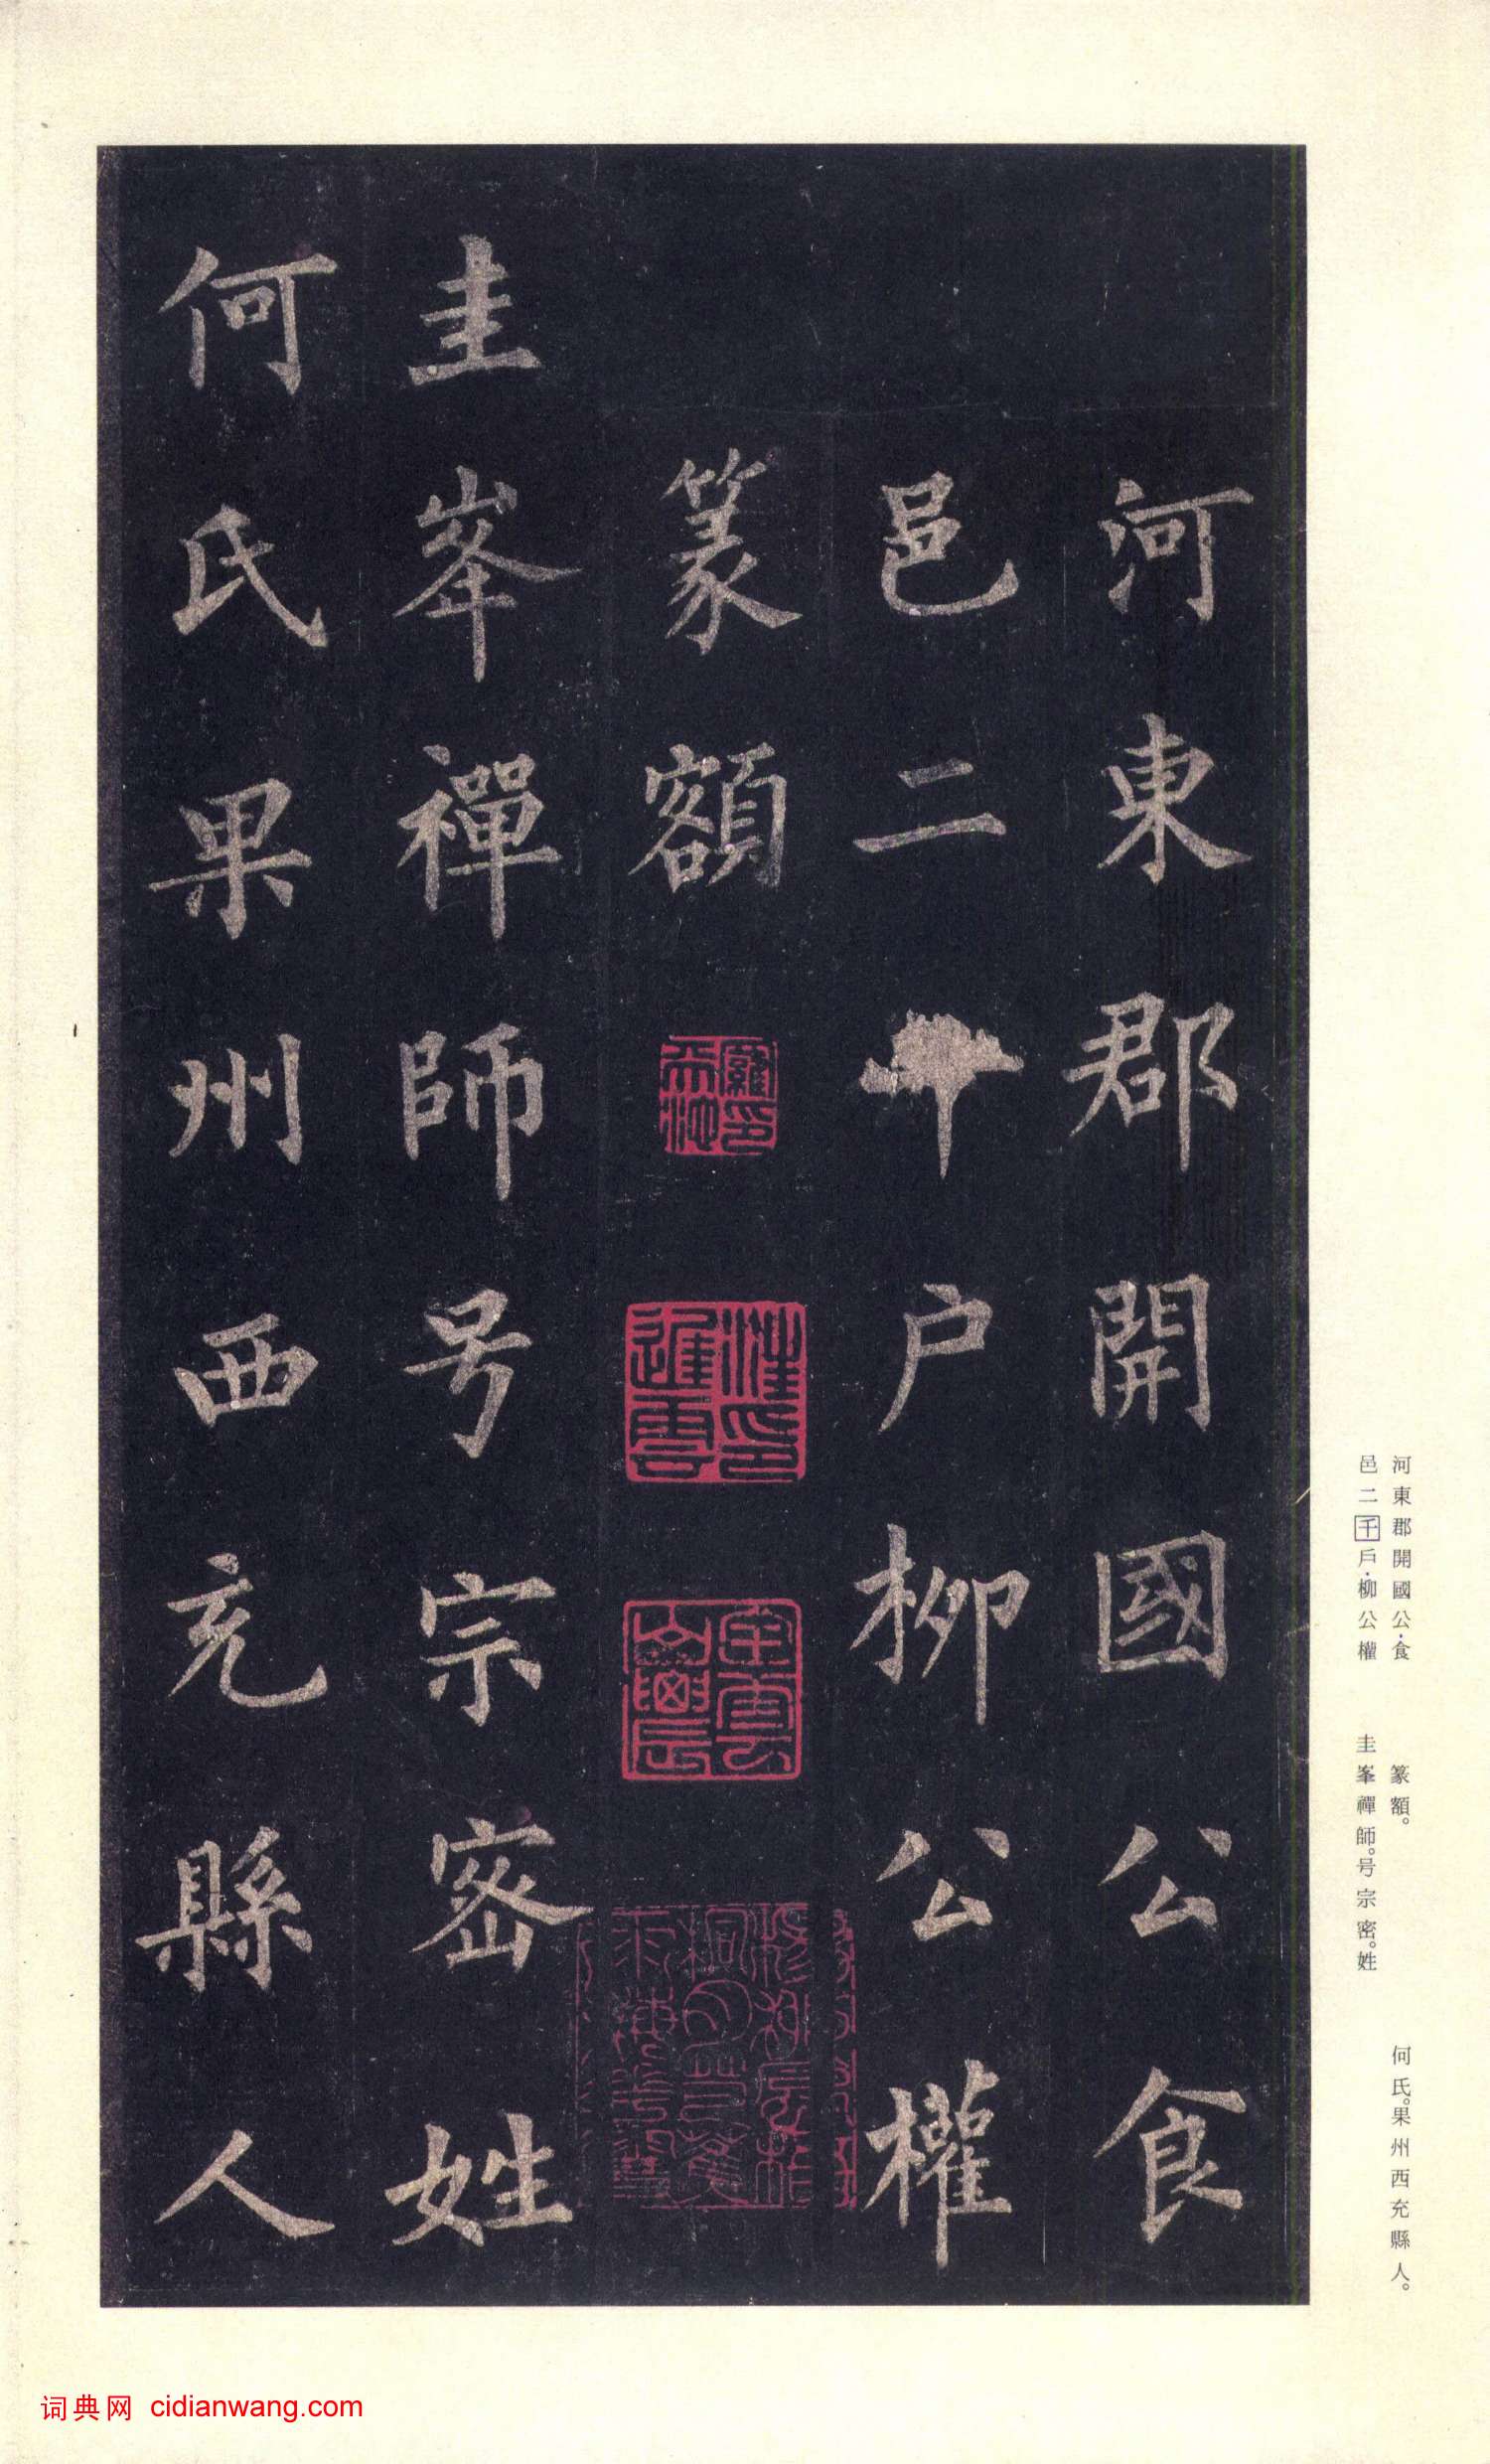 河東郡開國公食
邑二千戶柳公權
篆額
圭峯禪師号宗密姓
何氏果州西充縣人
河東郡開國公·食
邑二千戶·柳公權
篆額。
圭峯禪師。号宗密。姓
何氏。果州西充縣人。
词典网 cidianwang.com